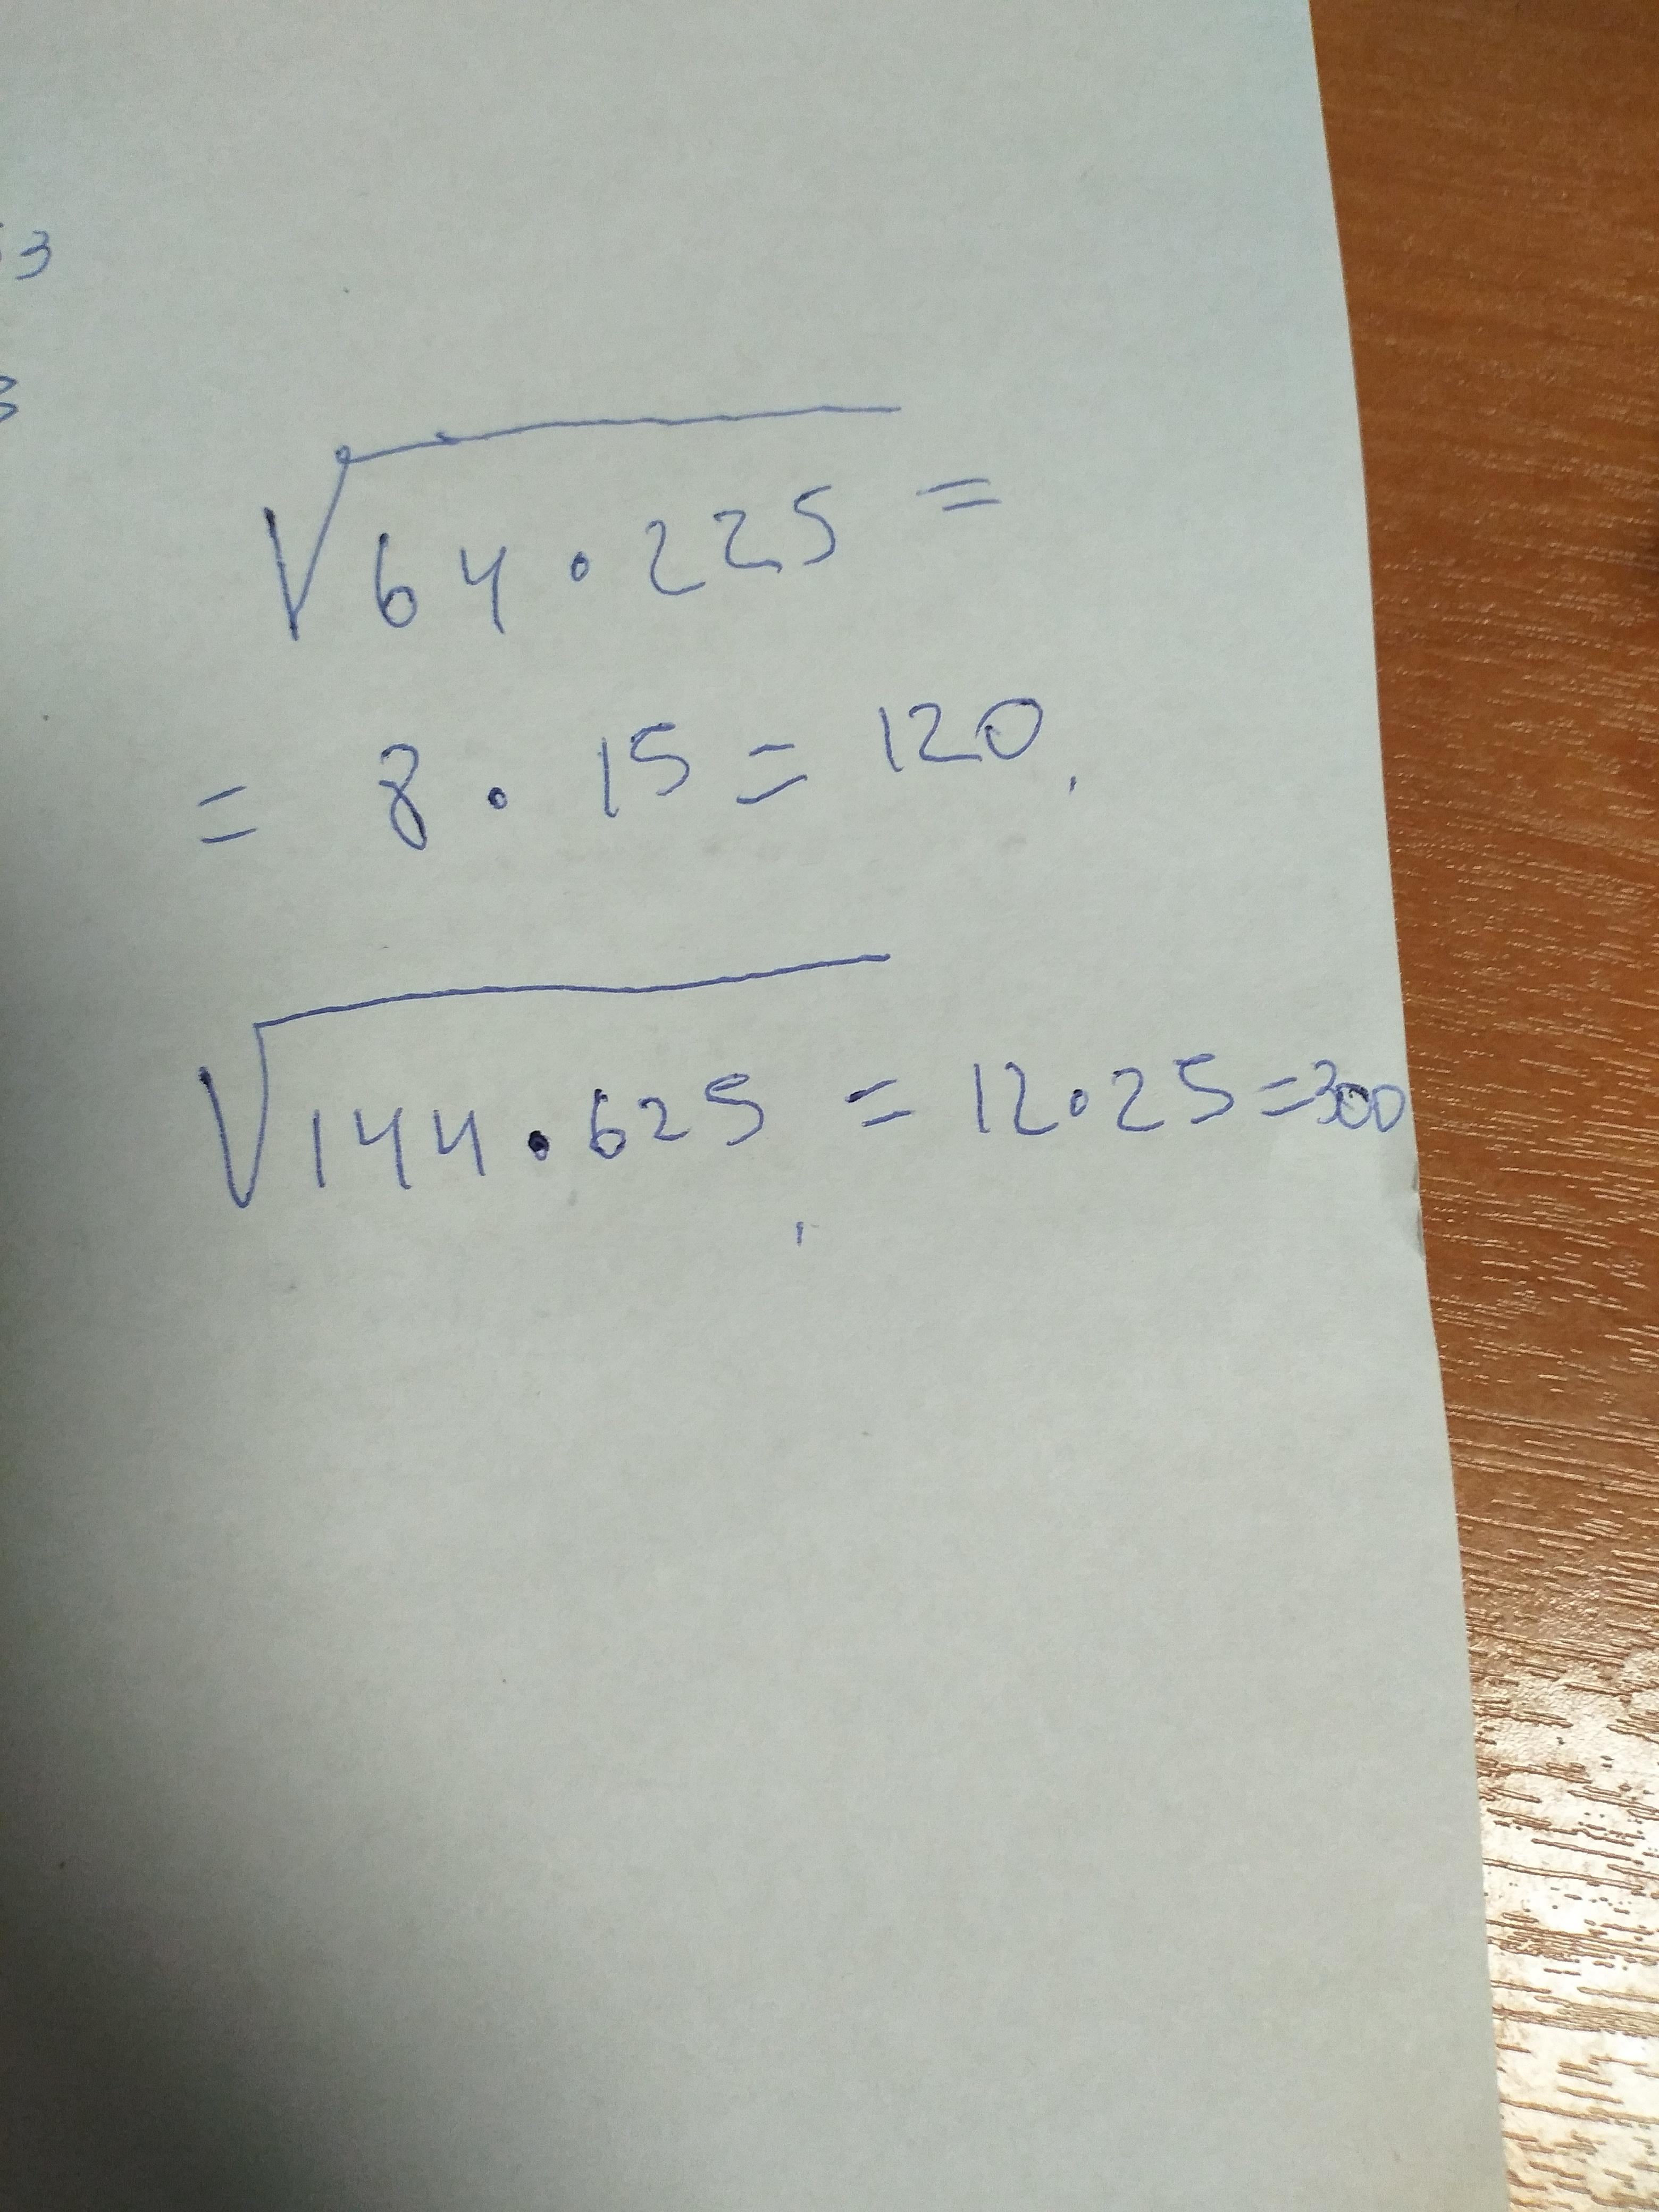 3
3
√64·225 =
= 8 · 15 = 120,
√144·625 = 12·25=300